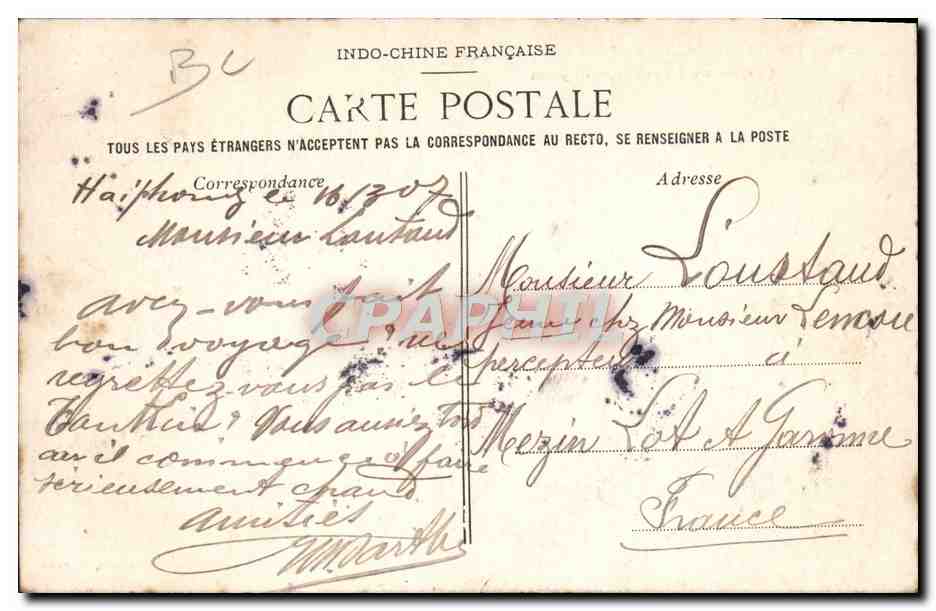 BC
INDO-CHINE FRANÇAISE
CARTE POSTALE
TOUS LES PAYS ÉTRANGERS N'ACCEPTENT PAS LA CORRESPONDANCE AU RECTO, SE RENSEIGNER A LA POSTE
Correspondance
Adresse
Haïphong le 16/3 07
Monsieur Loustaud
avez-vous fait
bon voyage? ne
regrettez-vous pas le
Tonkin? Vous auriez tord
car il commence à faire
sérieusement chaud
amitiés
CPAPHIL
Monsieur Loustaud
Jean chez Monsieur
percepteur à
Mezin Lot et Garonne
France